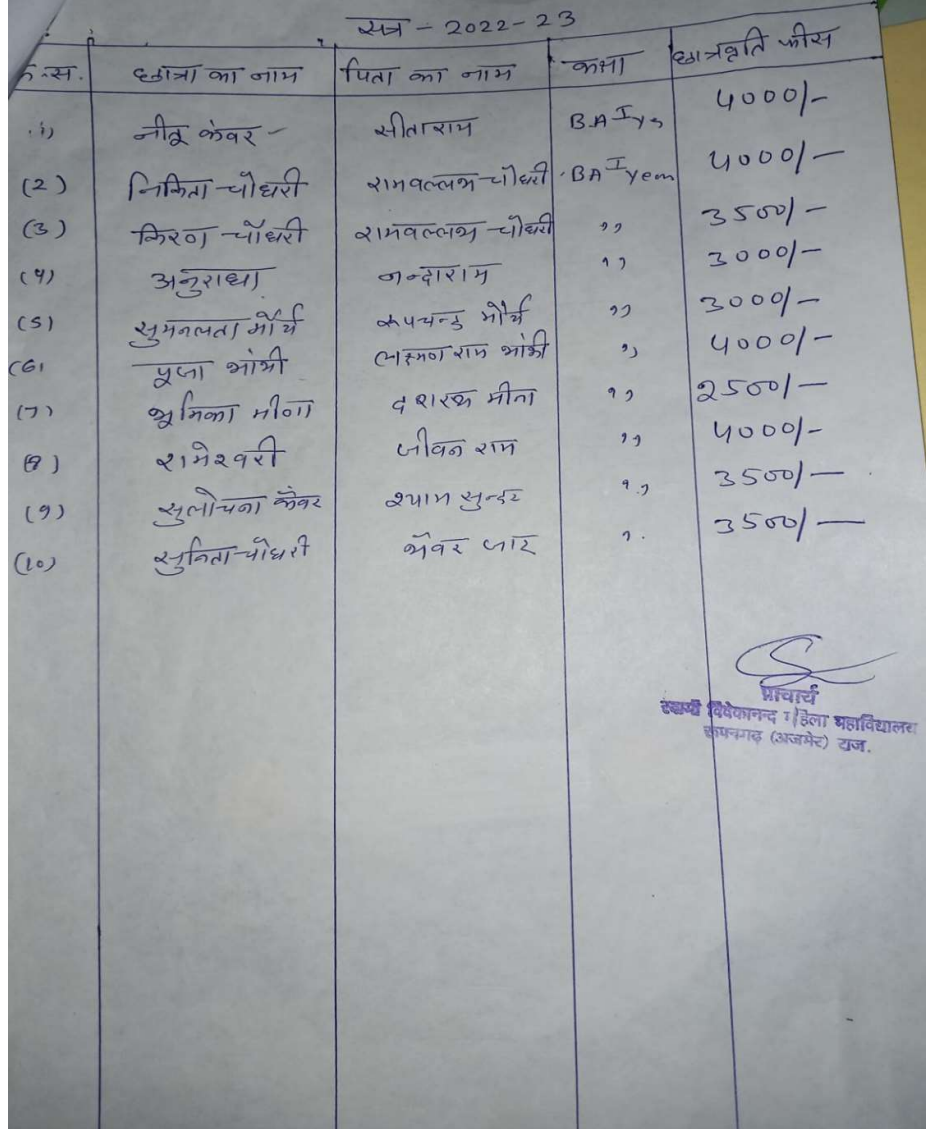 सत्र - 2022-23
क्र.स. छात्रा का नाम पिता का नाम कक्षा छात्रवृति फीस
(1) नीतू कंवर - सीताराम BA I Yr 4000/-
(2) निकिता चौधरी रामवल्लभ चौधरी BA I Year 4000/-
(3) किरण चौधरी रामवल्लभ चौधरी ,, 3500/-
(4) अनुराधा नन्दाराम ,, 3000/-
(5) सुमनलता मौर्य रूपचन्द मौर्य ,, 3000/-
(6) पूजा भांभी लक्ष्मण राम भांभी ,, 4000/-
(7) भूमिका मीणा दशरथ मीना ,, 2500/-
(8) रामेश्वरी जीवन राम ,, 4000/-
(9) सुलोचना कंवर श्याम सुन्दर ,, 3500/-
(10) सुनिता चौधरी भंवर जाट ,, 3500/-
प्राचार्य
स्वामी विवेकानन्द महिला महाविद्यालय
रूपनगढ़ (अजमेर) राज.